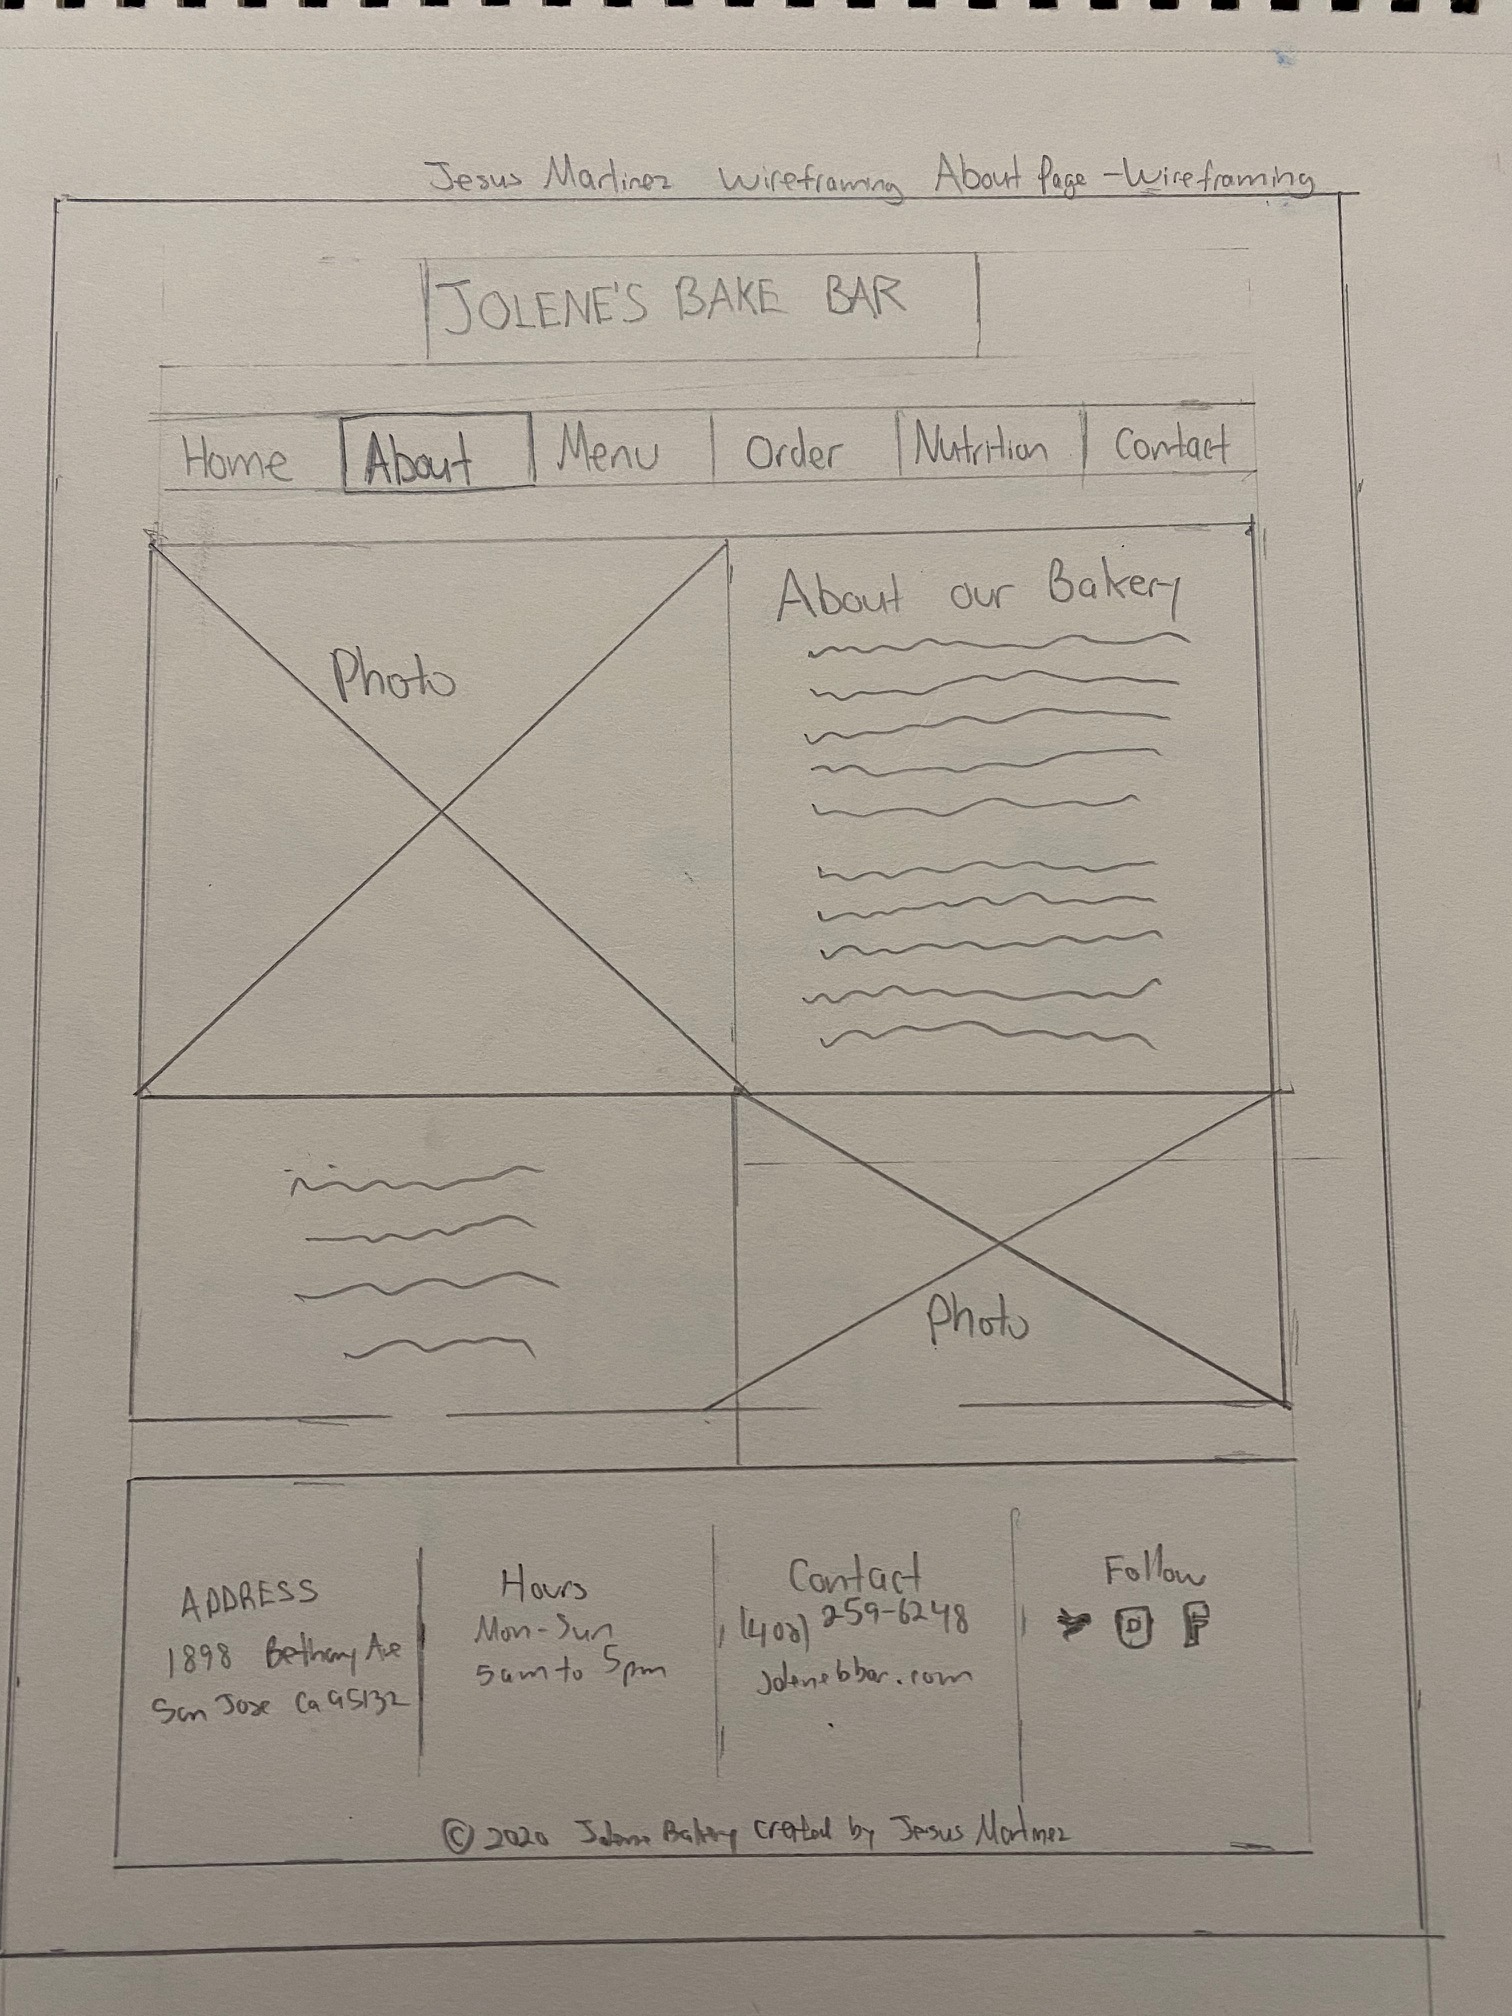 Jesus Martinez Wireframing About Page - Wireframing
JOLENE'S BAKE BAR
Home About Menu Order Nutrition Contact
Photo
About our Bakery
Photo
ADDRESS
1898 Bethany Ave
San Jose Ca 95132
Hours
Mon-Sun
5am to 5pm
Contact
(408) 259-6248
jolenebbar.com
Follow
F
© 2020 Jolene Bakery created by Jesus Martinez